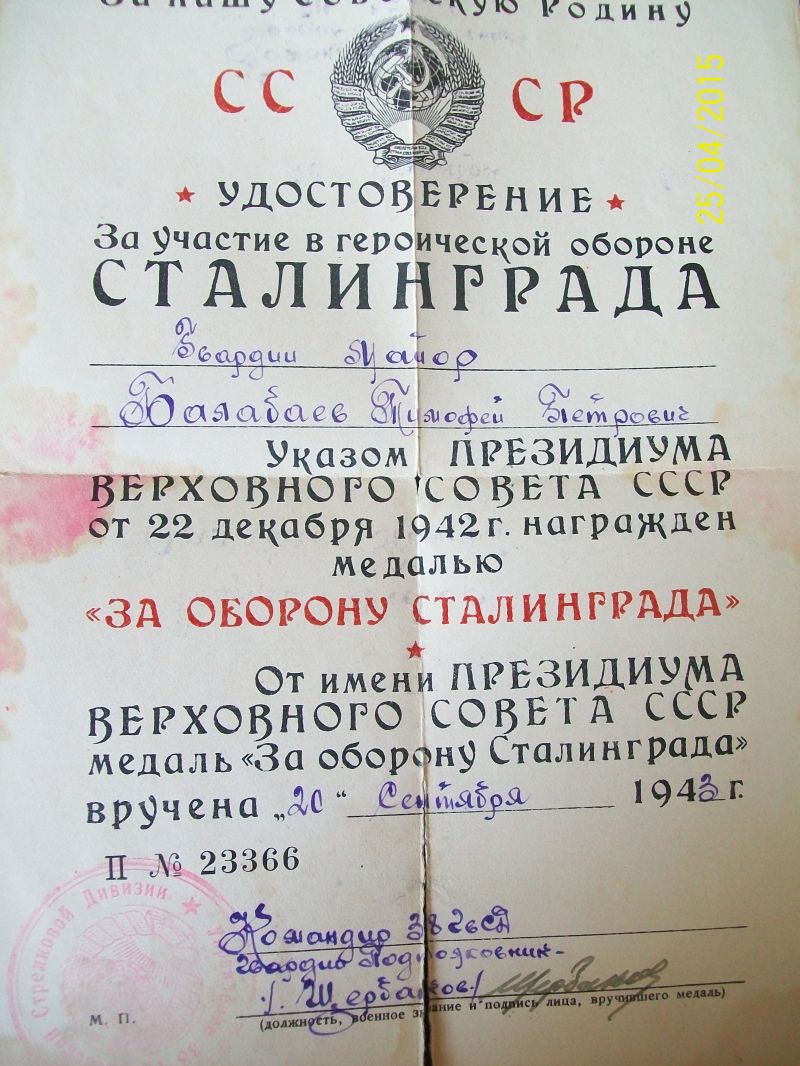 За нашу Советскую Родину
СССР
УДОСТОВЕРЕНИЕ
За участие в героической обороне
СТАЛИНГРАДА
Гвардии Майор
Балабаев Тимофей Петрович
Указом ПРЕЗИДИУМА
ВЕРХОВНОГО СОВЕТА СССР
от 22 декабря 1942 г. награжден
медалью
«ЗА ОБОРОНУ СТАЛИНГРАДА»
От имени ПРЕЗИДИУМА
ВЕРХОВНОГО СОВЕТА СССР
медаль «За оборону Сталинграда»
вручена „20“ Сентября 1943 г.
П № 23366
Командир 38 ГвСД
гвардии Подполковник-
/. Щербаков./
М. П.
(должность, военное звание и подпись лица, вручившего медаль)
Стрелковой Дивизии
25/04/2015